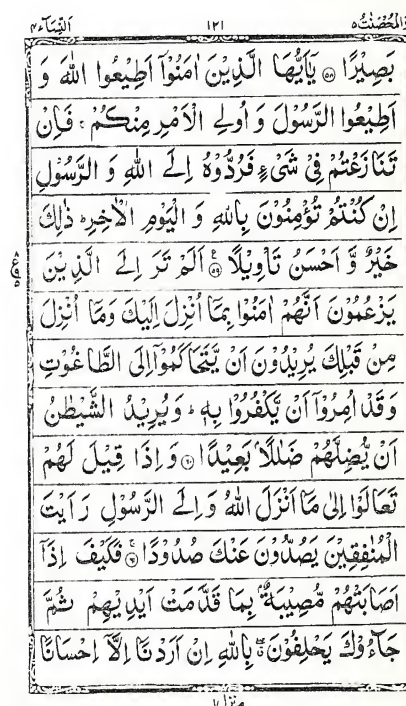 وَالْمُحْصَنٰتُ ٥ ١٢١ اَلنِّسَآء ٤
بَصِيْرًا ۝٥٨ يٰٓاَيُّهَا الَّذِيْنَ اٰمَنُوْٓا اَطِيْعُوا اللّٰهَ وَ
اَطِيْعُوا الرَّسُوْلَ وَ اُولِي الْاَمْرِ مِنْكُمْ ۚ فَاِنْ
تَنَازَعْتُمْ فِيْ شَيْءٍ فَرُدُّوْهُ اِلَى اللّٰهِ وَ الرَّسُوْلِ
اِنْ كُنْتُمْ تُؤْمِنُوْنَ بِاللّٰهِ وَ الْيَوْمِ الْاٰخِرِ ؕ ذٰلِكَ
خَيْرٌ وَّ اَحْسَنُ تَاْوِيْلًا ۝٥٩ اَلَمْ تَرَ اِلَى الَّذِيْنَ
يَزْعُمُوْنَ اَنَّهُمْ اٰمَنُوْا بِمَآ اُنْزِلَ اِلَيْكَ وَمَآ اُنْزِلَ
مِنْ قَبْلِكَ يُرِيْدُوْنَ اَنْ يَّتَحَاكَمُوْٓا اِلَى الطَّاغُوْتِ
وَقَدْ اُمِرُوْٓا اَنْ يَّكْفُرُوْا بِهٖ ؕ وَيُرِيْدُ الشَّيْطٰنُ
اَنْ يُّضِلَّهُمْ ضَلٰلًۢا بَعِيْدًا ۝٦٠ وَاِذَا قِيْلَ لَهُمْ
تَعَالَوْا اِلٰى مَآ اَنْزَلَ اللّٰهُ وَاِلَى الرَّسُوْلِ رَاَيْتَ
الْمُنٰفِقِيْنَ يَصُدُّوْنَ عَنْكَ صُدُوْدًا ۝٦١ فَكَيْفَ اِذَآ
اَصَابَتْهُمْ مُّصِيْبَةٌۢ بِمَا قَدَّمَتْ اَيْدِيْهِمْ ثُمَّ
جَآءُوْكَ يَحْلِفُوْنَ ۖ بِاللّٰهِ اِنْ اَرَدْنَآ اِلَّآ اِحْسَانًا
منزل ١